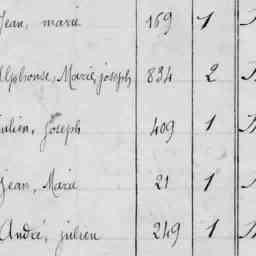 Jean, marie 169 1
Alphonse, Marie, joseph 834 2
Julien, Joseph 409 1
Jean, Marie 21 1
André, julien 249 1